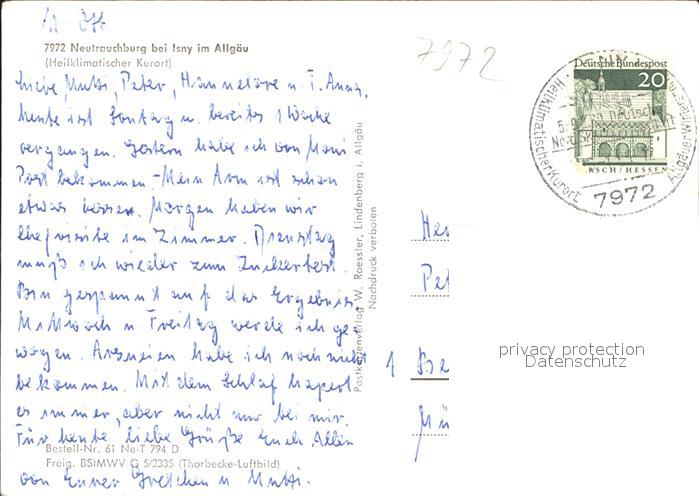 7972 Neutrauchburg bei Isny im Allgäu
(Heilklimatischer Kurort)
7972
Liebe Mutti, Peter, Hannelore u. T. Anna,
heute ist Sonntag u. bereits 1 Woche
vergangen. Gestern habe ich von Moni
Post bekommen. Mein Arm ist schon
etwas besser. Morgen haben wir
Chefvisite im Zimmer. Dienstag
muß ich wieder zum Zuckertest.
Bin gespannt auf das Ergebnis.
Mittwoch u. Freitag werde ich ge
wogen. Arzneien habe ich noch nicht
bekommen. Mit dem Schlaf hapert
es immer, aber nicht nur bei mir.
Für heute liebe Grüße Euch Allen
von Eurer Gretchen u. Mutti.
Bestell-Nr. 61 Ne-T 794 D
Freig. BStMWV G 5/2335 (Thorbecke-Luftbild)
Postkartenverlag W. Roessler, Lindenberg i. Allgäu
Nachdruck verboten
Deutsche Bundespost
20
RSCH/HESSEN
Heilklimatischer Kurort
7972
Her
Pet
1 Be
Mü
privacy protection
Datenschutz